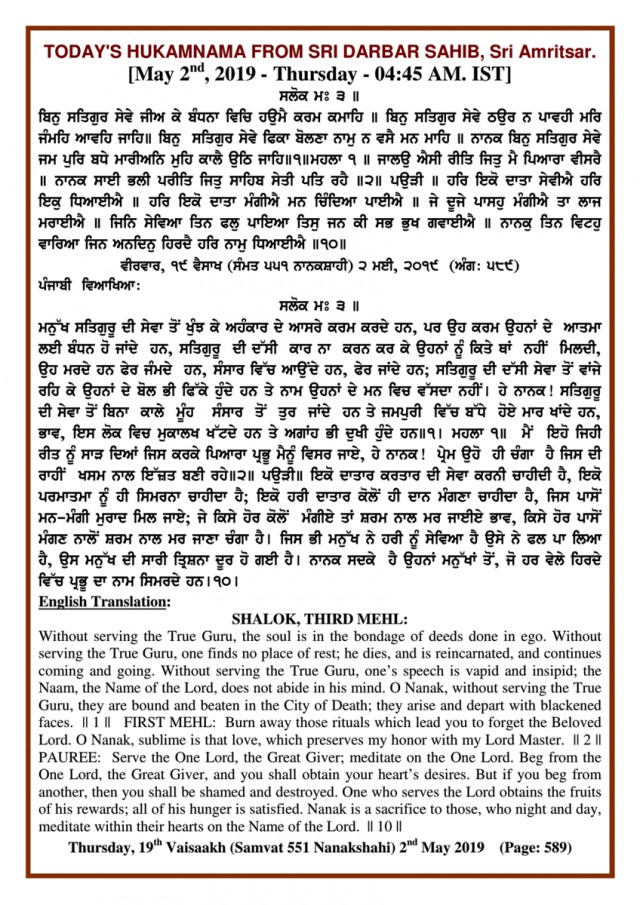 TODAY'S HUKAMNAMA FROM SRI DARBAR SAHIB, Sri Amritsar.
[May 2nd, 2019 - Thursday - 04:45 AM. IST]
ਸਲੋਕ ਮਃ ੩ ॥
ਬਿਨੁ ਸਤਿਗੁਰ ਸੇਵੇ ਜੀਅ ਕੇ ਬੰਧਨਾ ਵਿਚਿ ਹਉਮੈ ਕਰਮ ਕਮਾਹਿ ॥ ਬਿਨੁ ਸਤਿਗੁਰ ਸੇਵੇ ਠਉਰ ਨ ਪਾਵਹੀ ਮਰਿ
ਜੰਮਹਿ ਆਵਹਿ ਜਾਹਿ॥ ਬਿਨੁ ਸਤਿਗੁਰ ਸੇਵੇ ਫਿਕਾ ਬੋਲਣਾ ਨਾਮੁ ਨ ਵਸੈ ਮਨ ਮਾਹਿ ॥ ਨਾਨਕ ਬਿਨੁ ਸਤਿਗੁਰ ਸੇਵੇ
ਜਮ ਪੁਰਿ ਬਧੇ ਮਾਰੀਅਨਿ ਮੁਹਿ ਕਾਲੈ ਉਠਿ ਜਾਹਿ॥੧॥ਮਹਲਾ ੧ ॥ ਜਾਲਉ ਐਸੀ ਰੀਤਿ ਜਿਤੁ ਮੈ ਪਿਆਰਾ ਵੀਸਰੈ
॥ ਨਾਨਕ ਸਾਈ ਭਲੀ ਪਰੀਤਿ ਜਿਤੁ ਸਾਹਿਬ ਸੇਤੀ ਪਤਿ ਰਹੈ ॥੨॥ ਪਉੜੀ ॥ ਹਰਿ ਇਕੋ ਦਾਤਾ ਸੇਵੀਐ ਹਰਿ
ਇਕੁ ਧਿਆਈਐ ॥ ਹਰਿ ਇਕੋ ਦਾਤਾ ਮੰਗੀਐ ਮਨ ਚਿੰਦਿਆ ਪਾਈਐ ॥ ਜੇ ਦੂਜੇ ਪਾਸਹੁ ਮੰਗੀਐ ਤਾ ਲਾਜ
ਮਰਾਈਐ ॥ ਜਿਨਿ ਸੇਵਿਆ ਤਿਨ ਫਲੁ ਪਾਇਆ ਤਿਸੁ ਜਨ ਕੀ ਸਭ ਭੁਖ ਗਵਾਈਐ ॥ ਨਾਨਕੁ ਤਿਨ ਵਿਟਹੁ
ਵਾਰਿਆ ਜਿਨ ਅਨਦਿਨੁ ਹਿਰਦੈ ਹਰਿ ਨਾਮੁ ਧਿਆਈਐ ॥੧੦॥
ਵੀਰਵਾਰ, ੧੯ ਵੈਸਾਖ (ਸੰਮਤ ੫੫੧ ਨਾਨਕਸ਼ਾਹੀ) ੨ ਮਈ, ੨੦੧੯ (ਅੰਗ: ੫੮੯)
ਪੰਜਾਬੀ ਵਿਆਖਿਆ:
ਸਲੋਕ ਮਃ ੩ ॥
ਮਨੁੱਖ ਸਤਿਗੁਰੂ ਦੀ ਸੇਵਾ ਤੋਂ ਖੁੰਝ ਕੇ ਅਹੰਕਾਰ ਦੇ ਆਸਰੇ ਕਰਮ ਕਰਦੇ ਹਨ, ਪਰ ਉਹ ਕਰਮ ਉਹਨਾਂ ਦੇ ਆਤਮਾ
ਲਈ ਬੰਧਨ ਹੋ ਜਾਂਦੇ ਹਨ, ਸਤਿਗੁਰੂ ਦੀ ਦੱਸੀ ਕਾਰ ਨਾ ਕਰਨ ਕਰ ਕੇ ਉਹਨਾਂ ਨੂੰ ਕਿਤੇ ਥਾਂ ਨਹੀਂ ਮਿਲਦੀ,
ਉਹ ਮਰਦੇ ਹਨ ਫੇਰ ਜੰਮਦੇ ਹਨ, ਸੰਸਾਰ ਵਿੱਚ ਆਉਂਦੇ ਹਨ, ਫੇਰ ਜਾਂਦੇ ਹਨ; ਸਤਿਗੁਰੂ ਦੀ ਦੱਸੀ ਸੇਵਾ ਤੋਂ ਵਾਂਜੇ
ਰਹਿ ਕੇ ਉਹਨਾਂ ਦੇ ਬੋਲ ਭੀ ਫਿੱਕੇ ਹੁੰਦੇ ਹਨ ਤੇ ਨਾਮ ਉਹਨਾਂ ਦੇ ਮਨ ਵਿਚ ਵੱਸਦਾ ਨਹੀਂ। ਹੇ ਨਾਨਕ! ਸਤਿਗੁਰੂ
ਦੀ ਸੇਵਾ ਤੋਂ ਬਿਨਾ ਕਾਲੇ ਮੂੰਹ ਸੰਸਾਰ ਤੋਂ ਤੁਰ ਜਾਂਦੇ ਹਨ ਤੇ ਜਮਪੁਰੀ ਵਿੱਚ ਬੱਧੇ ਹੋਏ ਮਾਰ ਖਾਂਦੇ ਹਨ,
ਭਾਵ, ਇਸ ਲੋਕ ਵਿਚ ਮੁਕਾਲਖ ਖੱਟਦੇ ਹਨ ਤੇ ਅਗਾਂਹ ਭੀ ਦੁਖੀ ਹੁੰਦੇ ਹਨ॥੧। ਮਹਲਾ ੧॥ ਮੈਂ ਇਹੋ ਜਿਹੀ
ਰੀਤ ਨੂੰ ਸਾੜ ਦਿਆਂ ਜਿਸ ਕਰਕੇ ਪਿਆਰਾ ਪ੍ਰਭੂ ਮੈਨੂੰ ਵਿਸਰ ਜਾਏ, ਹੇ ਨਾਨਕ! ਪ੍ਰੇਮ ਉਹੋ ਹੀ ਚੰਗਾ ਹੈ ਜਿਸ ਦੀ
ਰਾਹੀਂ ਖਸਮ ਨਾਲ ਇੱਜ਼ਤ ਬਣੀ ਰਹੇ॥੨॥ ਪਉੜੀ॥ ਇਕੋ ਦਾਤਾਰ ਕਰਤਾਰ ਦੀ ਸੇਵਾ ਕਰਨੀ ਚਾਹੀਦੀ ਹੈ, ਇਕੋ
ਪਰਮਾਤਮਾ ਨੂੰ ਹੀ ਸਿਮਰਨਾ ਚਾਹੀਦਾ ਹੈ; ਇਕੋ ਹਰੀ ਦਾਤਾਰ ਕੋਲੋਂ ਹੀ ਦਾਨ ਮੰਗਣਾ ਚਾਹੀਦਾ ਹੈ, ਜਿਸ ਪਾਸੋਂ
ਮਨ-ਮੰਗੀ ਮੁਰਾਦ ਮਿਲ ਜਾਏ; ਜੇ ਕਿਸੇ ਹੋਰ ਕੋਲੋਂ ਮੰਗੀਏ ਤਾਂ ਸ਼ਰਮ ਨਾਲ ਮਰ ਜਾਈਏ ਭਾਵ, ਕਿਸੇ ਹੋਰ ਪਾਸੋਂ
ਮੰਗਣ ਨਾਲੋਂ ਸ਼ਰਮ ਨਾਲ ਮਰ ਜਾਣਾ ਚੰਗਾ ਹੈ। ਜਿਸ ਭੀ ਮਨੁੱਖ ਨੇ ਹਰੀ ਨੂੰ ਸੇਵਿਆ ਹੈ ਉਸੇ ਨੇ ਫਲ ਪਾ ਲਿਆ
ਹੈ, ਉਸ ਮਨੁੱਖ ਦੀ ਸਾਰੀ ਤ੍ਰਿਸ਼ਨਾ ਦੂਰ ਹੋ ਗਈ ਹੈ। ਨਾਨਕ ਸਦਕੇ ਹੈ ਉਹਨਾਂ ਮਨੁੱਖਾਂ ਤੋਂ, ਜੋ ਹਰ ਵੇਲੇ ਹਿਰਦੇ
ਵਿੱਚ ਪ੍ਰਭੂ ਦਾ ਨਾਮ ਸਿਮਰਦੇ ਹਨ।੧੦।
English Translation:
SHALOK, THIRD MEHL:
Without serving the True Guru, the soul is in the bondage of deeds done in ego. Without
serving the True Guru, one finds no place of rest; he dies, and is reincarnated, and continues
coming and going. Without serving the True Guru, one's speech is vapid and insipid; the
Naam, the Name of the Lord, does not abide in his mind. O Nanak, without serving the True
Guru, they are bound and beaten in the City of Death; they arise and depart with blackened
faces. || 1 || FIRST MEHL: Burn away those rituals which lead you to forget the Beloved
Lord. O Nanak, sublime is that love, which preserves my honor with my Lord Master. || 2 ||
PAUREE: Serve the One Lord, the Great Giver; meditate on the One Lord. Beg from the
One Lord, the Great Giver, and you shall obtain your heart's desires. But if you beg from
another, then you shall be shamed and destroyed. One who serves the Lord obtains the fruits
of his rewards; all of his hunger is satisfied. Nanak is a sacrifice to those, who night and day,
meditate within their hearts on the Name of the Lord. || 10 ||
Thursday, 19th Vaisaakh (Samvat 551 Nanakshahi) 2nd May 2019 (Page: 589)